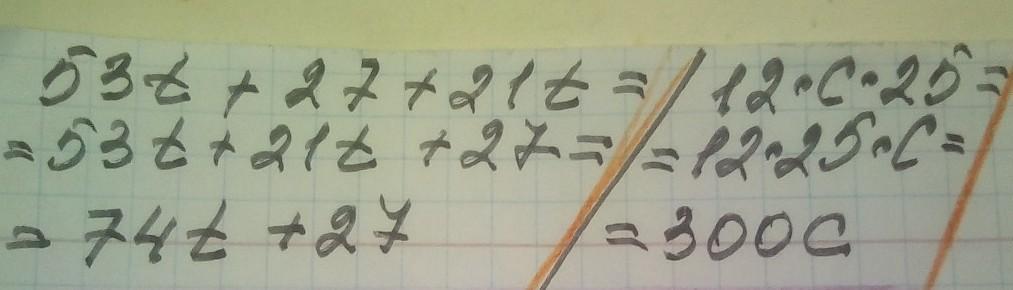 53t + 27 + 21t =
= 53t + 21t + 27 =
= 74t + 27
12 · c · 25 =
= 12 · 25 · c =
= 300c